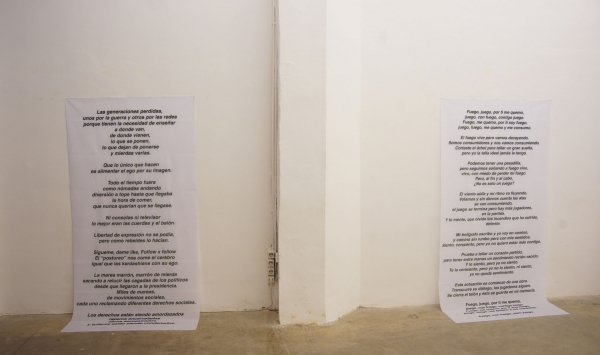 Las generaciones perdidas,
unos por la guerra y otros por las redes
porque tienen la necesidad de enseñar
a donde van,
de dónde vienen,
lo que se ponen,
lo que dejan de ponerse
y mierdas varias.
Que lo único que hacen
es alimentar el ego por su imagen.
Todo el tiempo fuera
como nómadas andando
diversión a tope hasta que llegaba
la hora de comer,
que nunca querían que se llegase.
Ni consolas ni televisor
lo mejor eran las cuerdas y el balón.
Libertad de expresión no se podía,
pero como rebeldes lo hacían.
Sígueme, dame like, Follow x follow
El "postureo" nos come el cerebro
igual que las kardashians con su ego.
La marea marrón, marrón de mierda
sacando a relucir las cagadas de los políticos
desde que llegaron a la presidencia.
Miles de mareas,
de movimientos sociales,
cada uno reclamando diferentes derechos sociales.
Los derechos están siendo amordazados
Fuego, juego, por ti me quemo,
juego, con fuego, contigo juego.
Fuego, me quemo, por ti soy fuego,
juego, fuego, me quemo y me consumo.
El fuego vive pero vamos decayendo.
Somos consumidores y nos vamos consumiendo.
Cortaste el árbol para tallar un gran sueño,
pero ya la talla ideal jamás la tengo.
Podemos tener una pesadilla,
pero seguimos soñando a fuego vivo,
vivo, con miedo de perder mi fuego.
Pero, al fin y al cabo,
¿No es solo un juego?
El viento solla y mi ritmo va fluyendo,
Volamos y sin darnos cuenta los días
se van consumiendo,
el juego se termina pero hay más jugadores,
en la partida.
detente.
Mi bolígrafo escribe y yo voy en camino,
y camino sin rumbo pero con mis sentidos.
Siento, consciente, pero ya no quiero estar más contigo.
Probé a tallar un corazón partido,
Y lo siento, pero yo no siento.
Tú lo consiente, pero yo no lo siento, ni siento,
ya no queda sentimiento.
Esta actuación se compone de una obra
Transcurre su diálogo, los jugadores siguen.
Se cierra el telón y ésta se guarda en mi memoria.
Fuego, juego, por ti me quemo,